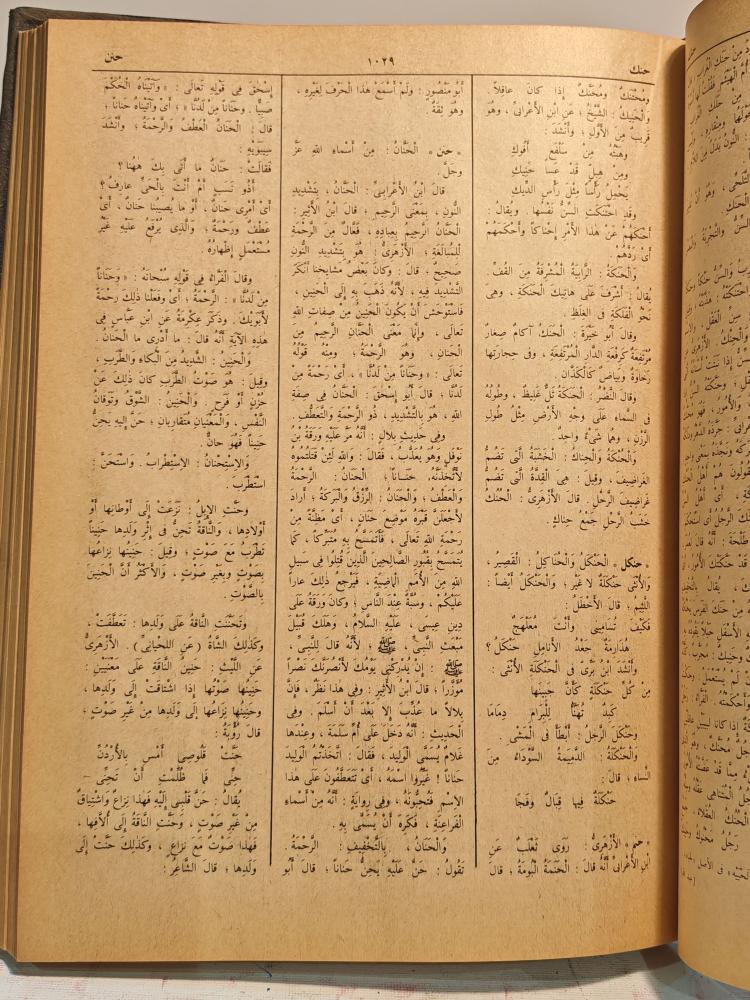 حنك
١٠٢٩
حنن
ومُحْتَنَكٌ ومُحَنَّكٌ إذا كانَ عاقِلاً .
وَالْحَنِيكُ : الشَّيْخُ ؛ عَنِ ابْنِ الأَعْرابيِّ ، وهُوَ
قَرِيبٌ مِنَ الأَوَّلِ ؛ وأَنْشَدَ :
وهَبْتُهُ مِنْ سَلْفَعٍ أَفُوكِ
ومِنْ هِبِلٍّ قَدْ عَسا حَنِيكِ
يَحْمِلُ رَأْساً مِثْلَ رَأْسِ الدِّيكِ
وقَدِ احْتَنَكَتِ السِّنُّ نَفْسُها . ويُقالُ :
أَحْنَكَهُمْ عَنْ هٰذا الأَمْرِ إِحْناكاً وأَحْكَمَهُمْ
أَىْ رَدَّهُمْ .
وَالْحَنَكَةُ : الرَّابِيَةُ الْمُشْرِفَةُ مِنَ القُفِّ .
يُقالُ : أَشْرَفَ عَلَى هاتِيكَ الْحَنَكَةِ ، وهِىَ
نَحْوُ الْفَلَكَةِ فِى الْغِلَظِ .
وقالَ أَبُو خَيْرَةَ : الْحَنَكُ آكامٌ صِغارٌ
مُرْتَفِعَةٌ كَرِفْعَةِ الدَّارِ الْمُرْتَفِعَةِ ، وفى حِجارَتِها
رَخاوَةٌ وبَياضٌ كَالْكَذَّانِ .
وقالَ النَّضْرُ : الْحَنَكَةُ تَلٌّ غَلِيظٌ ، وطُولُهُ
فى السَّماءِ عَلَى وَجْهِ الأَرْضِ مِثْلُ طُولِ
الرَّزْنِ ، وهُما شَىْءٌ واحِدٌ .
وَالْحُنْكَةُ وَالْحِناكُ : الْخَشَبَةُ الَّتِى تَضُمُّ
الْغَراضِيفَ ، وقِيلَ : هِىَ الْقِدَّةُ الَّتِى تَضُمُّ
غَراضِيفَ الرَّحْلِ . قالَ الأَزْهَرِىُّ : الْحُنُكُ
خَشَبُ الرَّحْلِ جَمْعُ حِناكٍ .
• حنكل • الْحَنْكَلُ وَالْحُناكِلُ : الْقَصِيرُ ،
وَالأُنْثَى حَنْكَلَةٌ لا غَيْرُ ؛ وَالْحَنْكَلُ أَيْضاً :
اللَّئِيمُ ؛ قالَ الأَخْطَلُ :
فَكَيْفَ تُسامِينِى وأَنْتَ مُعَلْهَجٌ
هُذارِمَةٌ جَعْدُ الأَنامِلِ حَنْكَلُ ؟
وأَنْشَدَ ابْنُ بَرِّىّ فى الْحَنْكَلَةِ الأُنْثَى :
مِنْ كُلِّ حَنْكَلَةٍ كَأَنَّ جَبِينَها
كَبِدٌ تُهَنَّأُ لِلْبِرامِ دِمامَا
وحَنْكَلَ الرَّجُلُ : أَبْطَأَ فى الْمَشْىِ .
وَالْحَنْكَلَةُ : الدَّمِيمَةُ السَّوْداءُ مِنَ
النِّساءِ ؛ قالَ :
حَنْكَلَةٌ فِيها قِبالٌ وفَجَا
• حنم • الأَزْهَرِىُّ : رَوَى ثَعْلَبٌ عَنِ
ابْنِ الأَعْرابىِّ أَنَّهُ قالَ : الْحَنَمَةُ الْبُومَةُ ؛ قالَ
أَبُو مَنْصُورٍ : ولَمْ أَسْمَعْ هٰذا الْحَرْفَ لِغَيْرِهِ ،
وهُوَ ثِقَةٌ .
• حنن • الْحَنَّانُ : مِنْ أَسْماءِ اللهِ عَزَّ
وجَلَّ .
قالَ ابْنُ الأَعْرابىِّ : الْحَنَّانُ ، بِتَشْدِيدِ
النُّونِ ، بِمَعْنَى الرَّحِيمِ ؛ قالَ ابْنُ الأَثِيرِ :
الْحَنَّانُ الرَّحِيمُ بِعِبادِهِ ، فَعَّالٌ مِنَ الرَّحْمَةِ
لِلْمُبالَغَةِ ؛ الأَزْهَرِىُّ : هُوَ بِتَشْدِيدِ النُّونِ
صَحِيحٌ ؛ قالَ : وكانَ بَعْضُ مَشايِخِنا أَنْكَرَ
التَّشْدِيدَ فِيهِ ، لأَنَّهُ ذَهَبَ بِهِ إِلَى الْحَنِينِ ،
فَاسْتَوْحَشَ أَنْ يَكُونَ الْحَنِينُ مِنْ صِفاتِ اللهِ
تَعالَى ، وإِنَّما مَعْنَى الْحَنَّانِ الرَّحِيمُ مِنَ
الْحَنانِ ، وهُوَ الرَّحْمَةُ ؛ ومِنْهُ قَوْلُهُ
تَعالَى : « وحَناناً مِنْ لَدُنَّا » ، أَىْ رَحْمَةً مِنْ
لَدُنَّا ؛ قالَ أَبُو إِسْحٰقَ : الْحَنَّانُ فى صِفَةِ
اللهِ ، هُوَ بِالتَّشْدِيدِ ، ذُو الرَّحْمَةِ وَالتَّعَطُّفِ .
وفى حَدِيثِ بِلالٍ : أَنَّهُ مَرَّ عَلَيْهِ وَرَقَةُ بْنُ
نَوْفَلٍ وهُوَ يُعَذَّبُ ، فَقالَ : وَاللهِ لَئِنْ قَتَلْتُمُوهُ
لأَتَّخِذَنَّهُ حَناناً ؛ الْحَنانُ : الرَّحْمَةُ
وَالْعَطْفُ ؛ وَالْحَنانُ : الرِّزْقُ وَالْبَرَكَةُ ؛ أَرادَ
لأَجْعَلَنَّ قَبْرَهُ مَوْضِعَ حَنانٍ ، أَىْ مَظِنَّةً مِنْ
رَحْمَةِ اللهِ تَعالَى ، فَأَتَمَسَّحُ بِهِ مُتَبَرِّكاً ، كَما
يُتَمَسَّحُ بِقُبُورِ الصَّالِحِينَ الَّذِينَ قُتِلُوا فى سَبِيلِ
اللهِ مِنَ الأُمَمِ الْماضِيَةِ ، فَيَرْجِعُ ذٰلِكَ عاراً
عَلَيْكُمْ ، وسُبَّةً عِنْدَ النَّاسِ ؛ وكانَ وَرَقَةُ عَلَى
دِينِ عِيسَى ، عَلَيْهِ السَّلامُ ، وهَلَكَ قُبَيْلَ
مَبْعَثِ النَّبِىِّ ، ﷺ ؛ لأَنَّهُ قالَ لِلنَّبِىِّ ،
ﷺ : إِنْ يُدْرِكْنِى يَوْمُكَ لأَنْصُرَنَّكَ نَصْراً
مُؤَزَّراً ؛ قالَ ابْنُ الأَثِيرِ : وفى هٰذا نَظَرٌ ، فَإِنَّ
بِلالاً ما عُذِّبَ إِلا بَعْدَ أَنْ أَسْلَمَ . وفى
الْحَدِيثِ : أَنَّهُ دَخَلَ عَلَى أُمِّ سَلَمَةَ ، وعِنْدَها
غُلامٌ يُسَمَّى الْوَلِيدَ ، فَقالَ : اتَّخَذْتُمُ الْوَلِيدَ
حَناناً ! غَيِّرُوا اسْمَهُ ، أَىْ تَتَعَطَّفُونَ عَلَى هٰذا
الاِسْمِ فَتُحِبُّونَهُ ، وفى رِوايَةٍ : أَنَّهُ مِنْ أَسْماءِ
الْفَراعِنَةِ ، فَكَرِهَ أَنْ يُسَمَّى بِهِ .
وَالْحَنانُ ، بِالتَّخْفِيفِ : الرَّحْمَةُ .
تَقُولُ : حَنَّ عَلَيْهِ يَحِنُّ حَناناً ؛ قالَ أَبُو
إِسْحٰقَ فى قَوْلِهِ تَعالَى : « وَآتَيْناهُ الْحُكْمَ
صَبِيًّا . وحَناناً مِنْ لَدُنَّا » ؛ أَىْ وآتَيْناهُ حَناناً ؛
قالَ : الْحَنانُ الْعَطْفُ وَالرَّحْمَةُ ؛ وأَنْشَدَ
سِيبَوَيْهِ :
فَقالَتْ : حَنانٌ ما أَتَى بِكَ هٰهُنا ؟
أَذُو نَسَبٍ أَمْ أَنْتَ بِالْحَىِّ عارِفُ ؟
أَىْ أَمْرِى حَنانٌ ، أَوْ ما يُصِيبُنا حَنانٌ ، أَىْ
عَطْفٌ ورَحْمَةٌ ؛ وَالَّذِى يُرْفَعُ عَلَيْهِ غَيْرُ
مُسْتَعْمَلٍ إِظْهارُهُ .
وقالَ الْفَرَّاءُ فى قَوْلِهِ سُبْحانَهُ : « وحَناناً
مِنْ لَدُنَّا » : الرَّحْمَةُ ؛ أَىْ وفَعَلْنا ذٰلِكَ رَحْمَةً
لأَبَوَيْكَ . وذَكَرَ عِكْرِمَةُ عَنِ ابْنِ عَبَّاسٍ فى
هٰذِهِ الآيَةِ أَنَّهُ قالَ : ما أَدْرِى ما الْحَنانُ .
وَالْحَنِينُ : الشَّدِيدُ مِنَ الْبُكاءِ وَالطَّرَبِ ،
وقِيلَ : هُوَ صَوْتُ الطَّرَبِ كانَ ذٰلِكَ عَنْ
حُزْنٍ أَوْ فَرَحٍ . وَالْحَنِينُ : الشَّوْقُ وتَوَقانُ
النَّفْسِ ، وَالْمَعْنَيانِ مُتَقارِبانِ ؛ حَنَّ إِلَيْهِ يَحِنُّ
حَنِيناً فَهُوَ حانٌّ .
وَالاِسْتِحْنانُ : الاِسْتِطْرابُ . وَاسْتَحَنَّ :
اسْتَطْرَبَ .
وحَنَّتِ الإِبِلُ : نَزَعَتْ إِلَى أَوْطانِها أَوْ
أَوْلادِها ، وَالنَّاقَةُ تَحِنُّ فى إِثْرِ وَلَدِها حَنِيناً
تَطْرَبُ مَعَ صَوْتٍ ؛ وقِيلَ : حَنِينُها نِزاعُها
بِصَوْتٍ وبِغَيْرِ صَوْتٍ ، وَالأَكْثَرُ أَنَّ الْحَنِينَ
بِالصَّوْتِ .
وتَحَنَّنَتِ النَّاقَةُ عَلَى وَلَدِها : تَعَطَّفَتْ ،
وكَذٰلِكَ الشَّاةُ ( عَنِ اللِّحْيانِىِّ ) . الأَزْهَرِىُّ
عَنِ اللَّيْثِ : حَنِينُ النَّاقَةِ عَلَى مَعْنَيَيْنِ :
حَنِينُها صَوْتُها إِذا اشْتاقَتْ إِلَى وَلَدِها ،
وحَنِينُها نِزاعُها إِلَى وَلَدِها مِنْ غَيْرِ صَوْتٍ ؛
قالَ رُؤْبَةُ :
حَنَّتْ قَلُوصِى أَمْسِ بِالأُرْدُنِّ
حِنِّى فَما ظُلِّمْتِ أَنْ تَحِنِّى
يُقالُ : حَنَّ قَلْبِى إِلَيْهِ فَهٰذا نِزاعٌ وَاشْتِياقٌ
مِنْ غَيْرِ صَوْتٍ ، وحَنَّتِ النَّاقَةُ إِلَى أُلاَّفِها ،
فَهٰذا صَوْتٌ مَعَ نِزاعٍ ، وكَذٰلِكَ حَنَّتْ إِلَى
وَلَدِها ؛ قالَ الشَّاعِرُ :